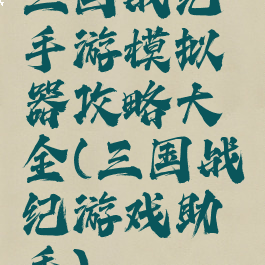 三国战纪
手游模拟
器攻略大
全(三国战
纪游戏助
手)